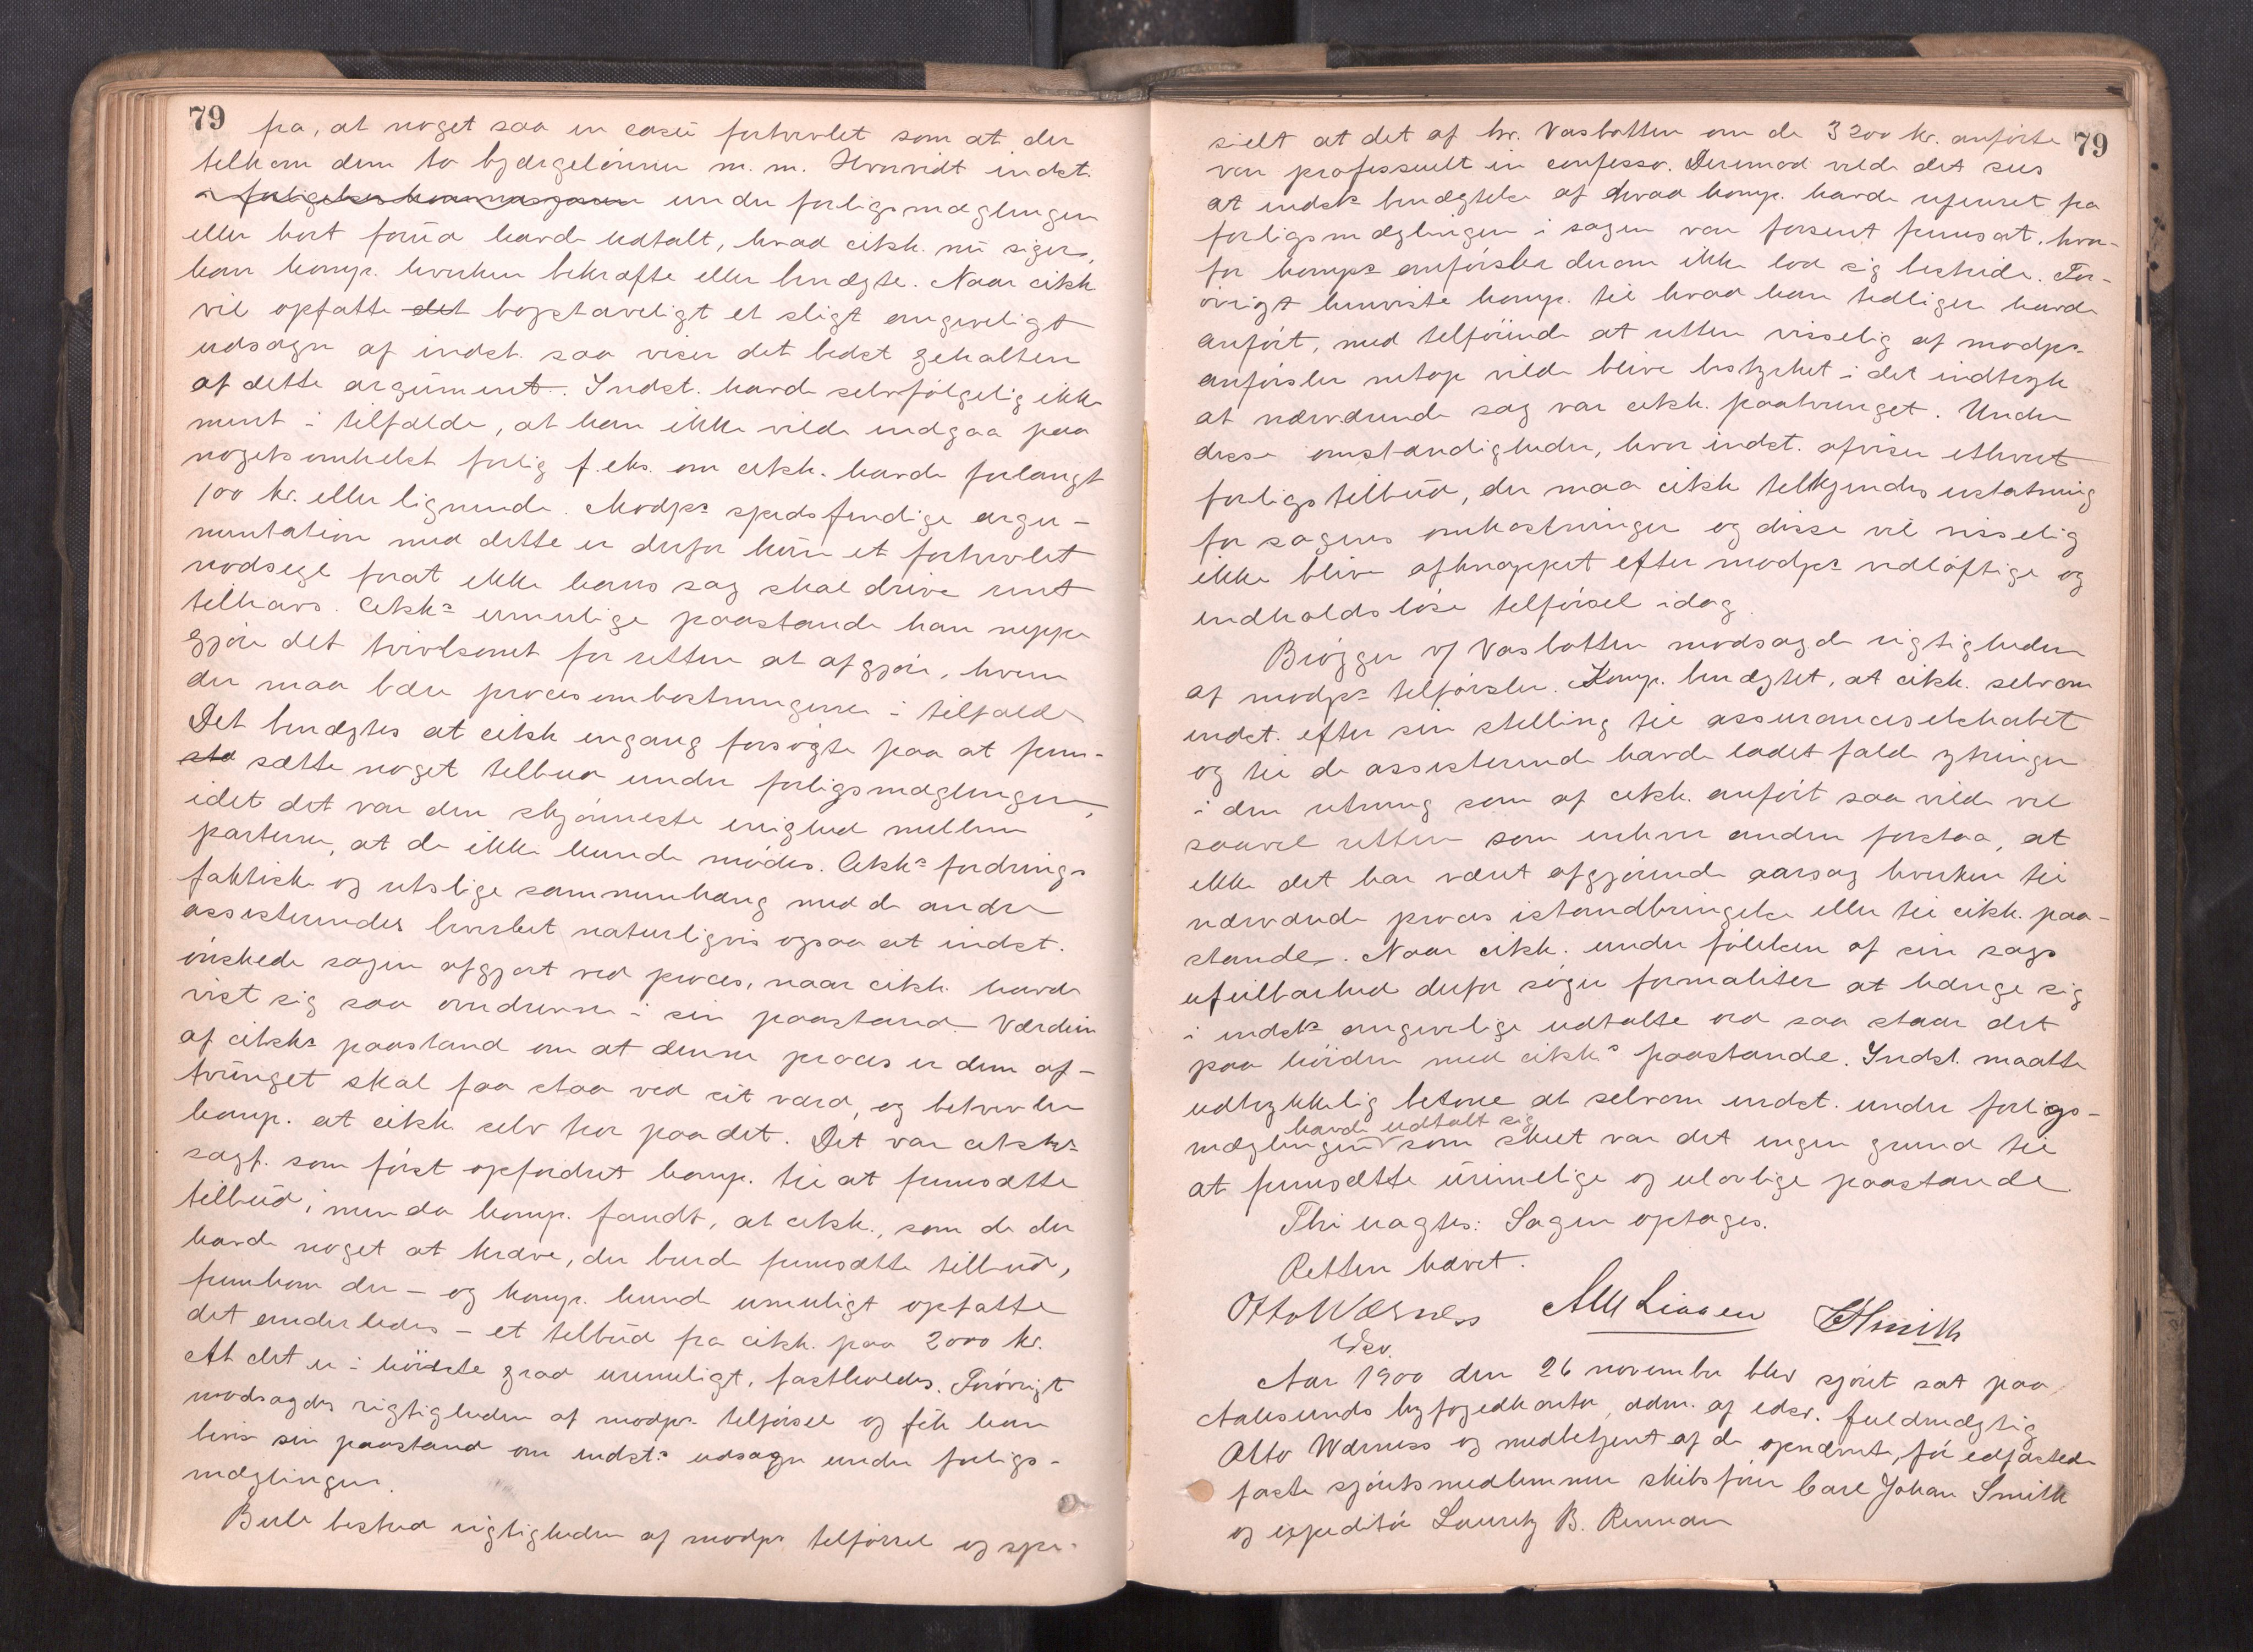 79
fra, at noget saa in casu fortvivlet som at der
tilkom dem to bjærgelønner m. m. Hvorvidt indst.
under forligsmæglingen
eller kort forud havde udtalt, hvad citk. nu siger,
kan komp. hverken bekræfte eller benægte. Naar citk
vil opfatte det bogstaveligt et sligt angiveligt
udsagn af indst. saa viser det bedst gehalten
af dette argument. Indst. havde selvfølgelig ikke
ment i tilfælde, at han ikke vilde indgaa paa
nogetsomhelst forlig f.eks. om citk. havde forlangt
100 kr. eller lignende. Modps spidsfindige argu-
mentation med dette er derfor kun et fortvivlet
nødsegl forat ikke hans sag skal drive rent
tilhavs. Citks umulige paastande kan neppe
gjøre det tvivlsomt for retten at afgjøre, hvem
der maa bære procesomkostningerne i tilfælde
Det benægtes at citk engang forsøgte paa at frem-
sta sætte noget tilbud under forligsmæglingen,
idet det var den skjønneste enighed mellem
parterne, at de ikke kunde mødes. Citks fordrings
faktiske og retslige sammenhæng med de andre
assisterendes bevirket naturligvis ogsaa at indst.
ønskede sagen afgjort ved proces, naar citk. havde
vist sig saa overdreven i sin paastand. Værdien
af citsks paastand om at denne proces er dem af-
tvunget skal faa staa ved sit værd, og betvivler
komp. at citk. selv tror paa det. Det var citsks
sagf. som først opfordret komp. til at fremsætte
tilbud, men da komp. fandt, at citk., som de der
havde noget at kræve, der burde fremsætte tilbud,
fremkom der – og komp. kunde umuligt opfatte
det anderledes – et tilbud fra citk. paa 2000 kr.
At det er i høieste grad urimeligt, fastholdes. Forøvrigt
modsagdes rigtigheden af modps. tilførsel og fik han
bevise sin paastand om indsts udsagn under forligs-
mæglingen.
Bull bestred rigtigheden af modps tilførsel og spe-
79
sielt at det af hr. Vasbotten om de 3200 kr. anførte
var professuelt in confesso. Derimod vilde det sees
at indsts benægtelse af hvad komp. havde refereret fra
forligsmæglingen i sagen var forsent fremsat, hvor-
for komps anførsler derom ikke lod sig bestride. For-
øvrigt henviste komp. til hvad han tidligere havde
anført, med tilføiende at retten visselig af modps
anførsler netop vilde blive bestyrket i det indtryk
at nærværende sag var citk. paatvunget. Under
disse omstændigheder, hvor indst. afviser ethvert
forligstilbud, der maa citk tilkjendes erstatning
for sagens omkostninger og disse vil visselig
ikke blive afknappet efter modps vidløftige og
indholdsløse tilførsel idag.
Brøgger og Vasbotten modsagde rigtigheden
af modps tilførsler. Komp. benægtet, at citk. selv om
indst. efter sin stilling til assuranceselskabet
og til de assisterende havde ladet falde ytringer
i den retning som af citk. anført saa vilde vel
saavel retten som enhver anden forstaa, at
ikke det har været afgjørende aarsag hverken til
nærværende proces istandbringelse eller til citk. paa-
stande. Naar citk. under følelsen af sin sags
ufeilbarhed derfor søger formaliter at hænge sig
i indsts angivelige udtalte ord saa staar det
paa høiden med citks paastande. Indst. maatte
udtrykkelig betone at selvom indst. under forligs-
havde udtalt sig
mæglingen som skeet var det ingen grund til
at fremsætte urimelige og ulovlige paastande.
Thi uagtes: Sagen optages.
Retten hævet.
Otto Wærness Liaaen CJSmith
edsv.
Aar 1900 den 26 november blev sjøret sat paa
Aalesunds byfogedkontor, adm. af edsv. fuldmægtig
Otto Wærness og medbetjent af de opnævnte, før edfæstede
faste sjøretsmedlemmer skibsfører Carl Johan Smith
og expeditør Lauritz B.